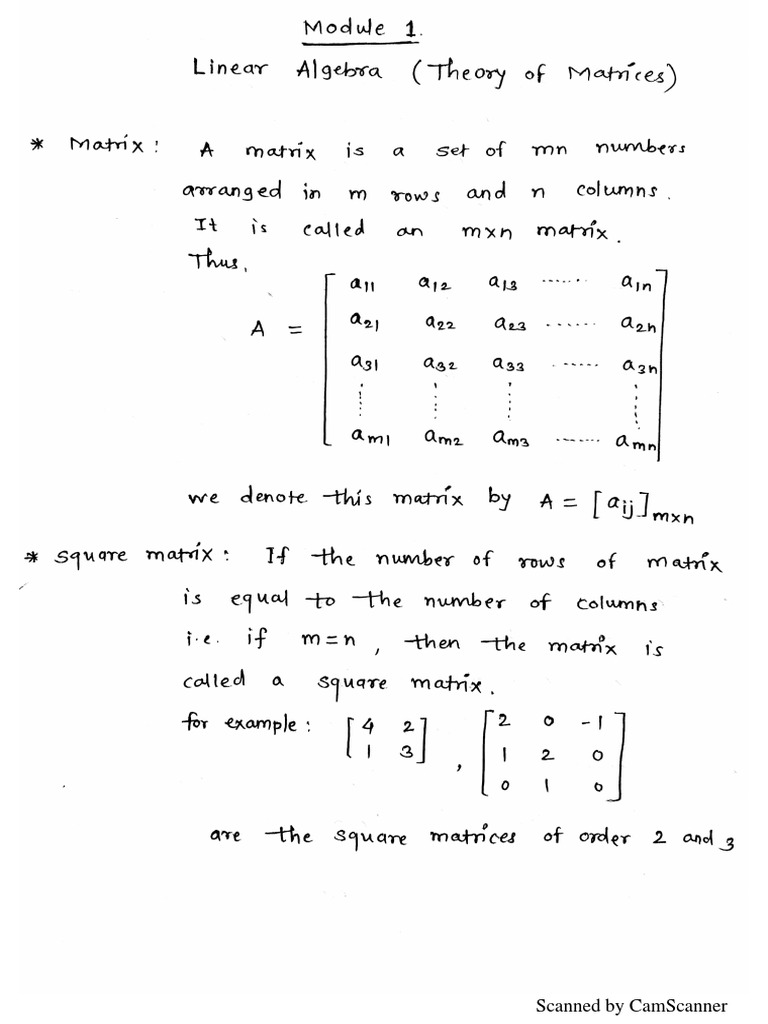 Module 1.
Linear Algebra (Theory of Matrices)
* Matrix: A matrix is a set of mn numbers
arranged in m rows and n columns.
It is called an m×n matrix.
Thus,
a11 a12 a13 ....... a1n
A = a21 a22 a23 ....... a2n
a31 a32 a33 ...... a3n
⋮ ⋮ ⋮ ⋮
am1 am2 am3 ........ amn
we denote this matrix by A = [aij]m×n
* Square matrix: If the number of rows of matrix
is equal to the number of columns
i.e. if m=n, then the matrix is
called a square matrix.
for example: [4 2 / 1 3], [2 0 -1 / 1 2 0 / 0 1 0]
are the square matrices of order 2 and 3
Scanned by CamScanner